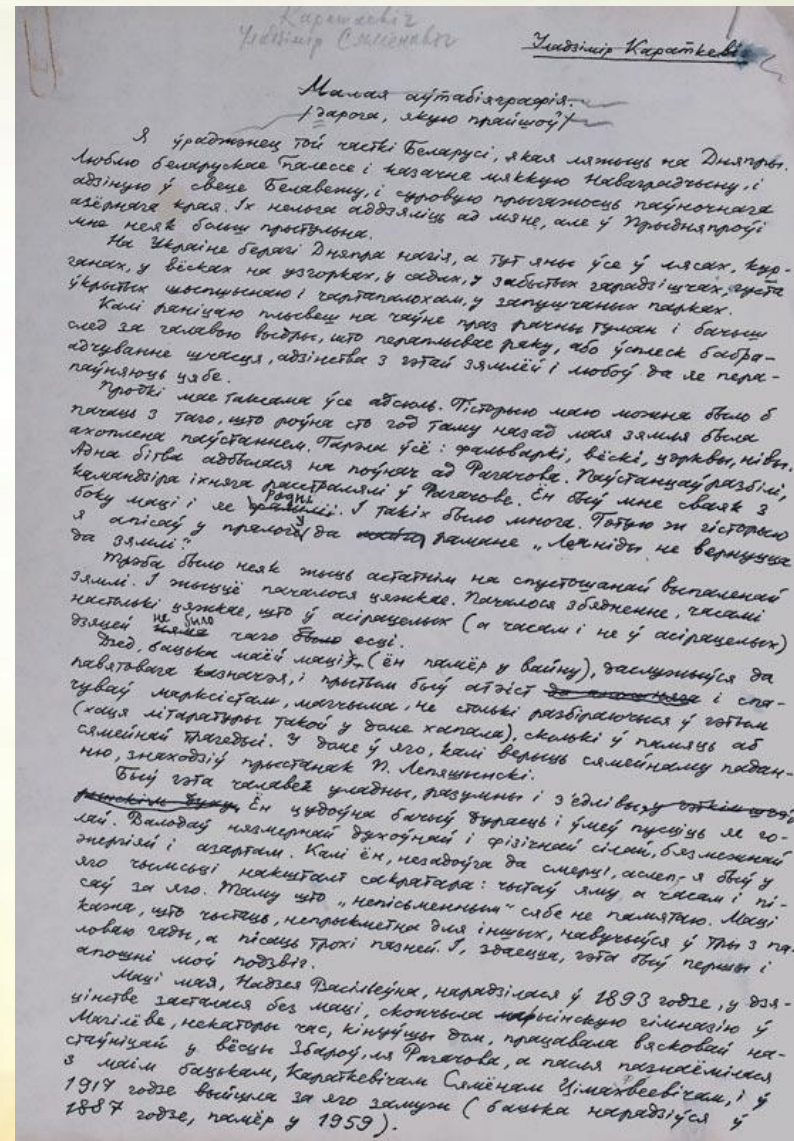 Караткевіч
Уладзімір Сямёнавіч
Уладзімір Караткевіч
Малая аўтабіяграфія.
/Дарога, якую прайшоў/
Я ўраджэнец той часткі Беларусі, якая ляжыць на Дняпры.
Люблю беларускае Палессе і казачна мяккую Наваградчыну, і
адзіную ў свеце Белавежу, і суровую прыгажосць паўночнага
азёрнага края. Іх нельга аддзяліць ад мяне, але ў Прыдняпроўі
мне неяк больш прытульна.
На Украіне берагі Дняпра нагія, а тут яны ўсе ў лясах, кур-
ганах, у вёсках на узгорках, у садах, у забытых гарадзішчах, густа
ўкрытых шыпшынаю і чартапалохам, у запушчаных парках.
Калі раніцаю плывеш на чаўне праз рачны туман і бачыш
след за галавою выдры, што пераплывае раку, або ўсплеск бабра –
адчуванне шчасця, адзінства з гэтай зямлёй і любоў да яе пера-
паўняюць цябе.
Продкі мае таксама ўсе адсюль. Гісторыю маю можна было б
пачаць з таго, што роўна сто год таму назад мая зямля была
ахоплена паўстаннем. Гарэла ўсё: фальваркі, вёскі, цэрквы, нівы.
Адна бітва адбылася на поўнач ад Рагачова. Паўстанцаў разбілі,
камандзіра іхняга расстралялі ў Рагачове. Ён быў мне сваяк з
боку маці і яе радні. І такіх было многа. Гэтую ж гісторыю
я апісаў у пралогу да рамана „Леаніды не вернуцца
да зямлі".
Трэба было неяк жыць астатнім на спустошанай выпаленай
зямлі. І жыццё пачалося цяжкае. Пачалося збядненне, часамі
настолькі цяжкае, што ў асірацелых (а часам і не ў асірацелых)
дзяцей не было чаго есці.
Дзед, бацька маёй маці, (ён памёр у вайну), даслужыўся да
павятовага казначэя, і прытым быў атэіст і спа-
чуваў марксістам, магчыма, не столькі разбіраючыся ў гэтым
(хаця літаратуры такой у доме хапала), колькі ў памяць аб
сямейнай трагедыі. У доме ў яго, калі верыць сямейнаму падан-
ню, знаходзіў прыстанак П. Лепяшынскі.
Быў гэта чалавек уладны, разумны і з'едлівы,
Ён цудоўна бачыў дурасць і ўмеў пусціць яе го-
лай. Валодаў нязмернай духоўнай і фізічнай сілай, бязмежнай
энергіяй і азартам. Калі ён, незадоўга да смерці, аслеп, я быў у
яго чымсьці накшталт сакратара: чытаў яму, а часам і пі-
саў за яго. Таму што „непісьменным" сябе не памятаю. Маці
кажа, што чытаць, непрыкметна для іншых, навучыўся ў тры з па-
ловаю гады, а пісаць трохі пазней. І, здаецца, гэта быў першы і
апошні мой подзвіг.
Маці мая, Надзея Васільеўна, нарадзілася ў 1893 годзе, у дзя-
цінстве засталася без маці, скончыла марыінскую гімназію ў
Магілёве, некаторы час, кінуўшы дом, працавала вясковай на-
стаўніцай у вёсцы Збароў, ля Рагачова, а пасля пазнаёмілася
з маім бацькам, Караткевічам Сямёнам Цімахвеевічам, і ў
1917 годзе выйшла за яго замуж (бацька нарадзіўся ў
1887 годзе, памёр у 1959).